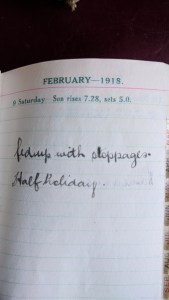 FEBRUARY—1918.
9 Saturday—Sun rises 7.28, sets 5.0.
fed up with stoppages.
Half Holiday.